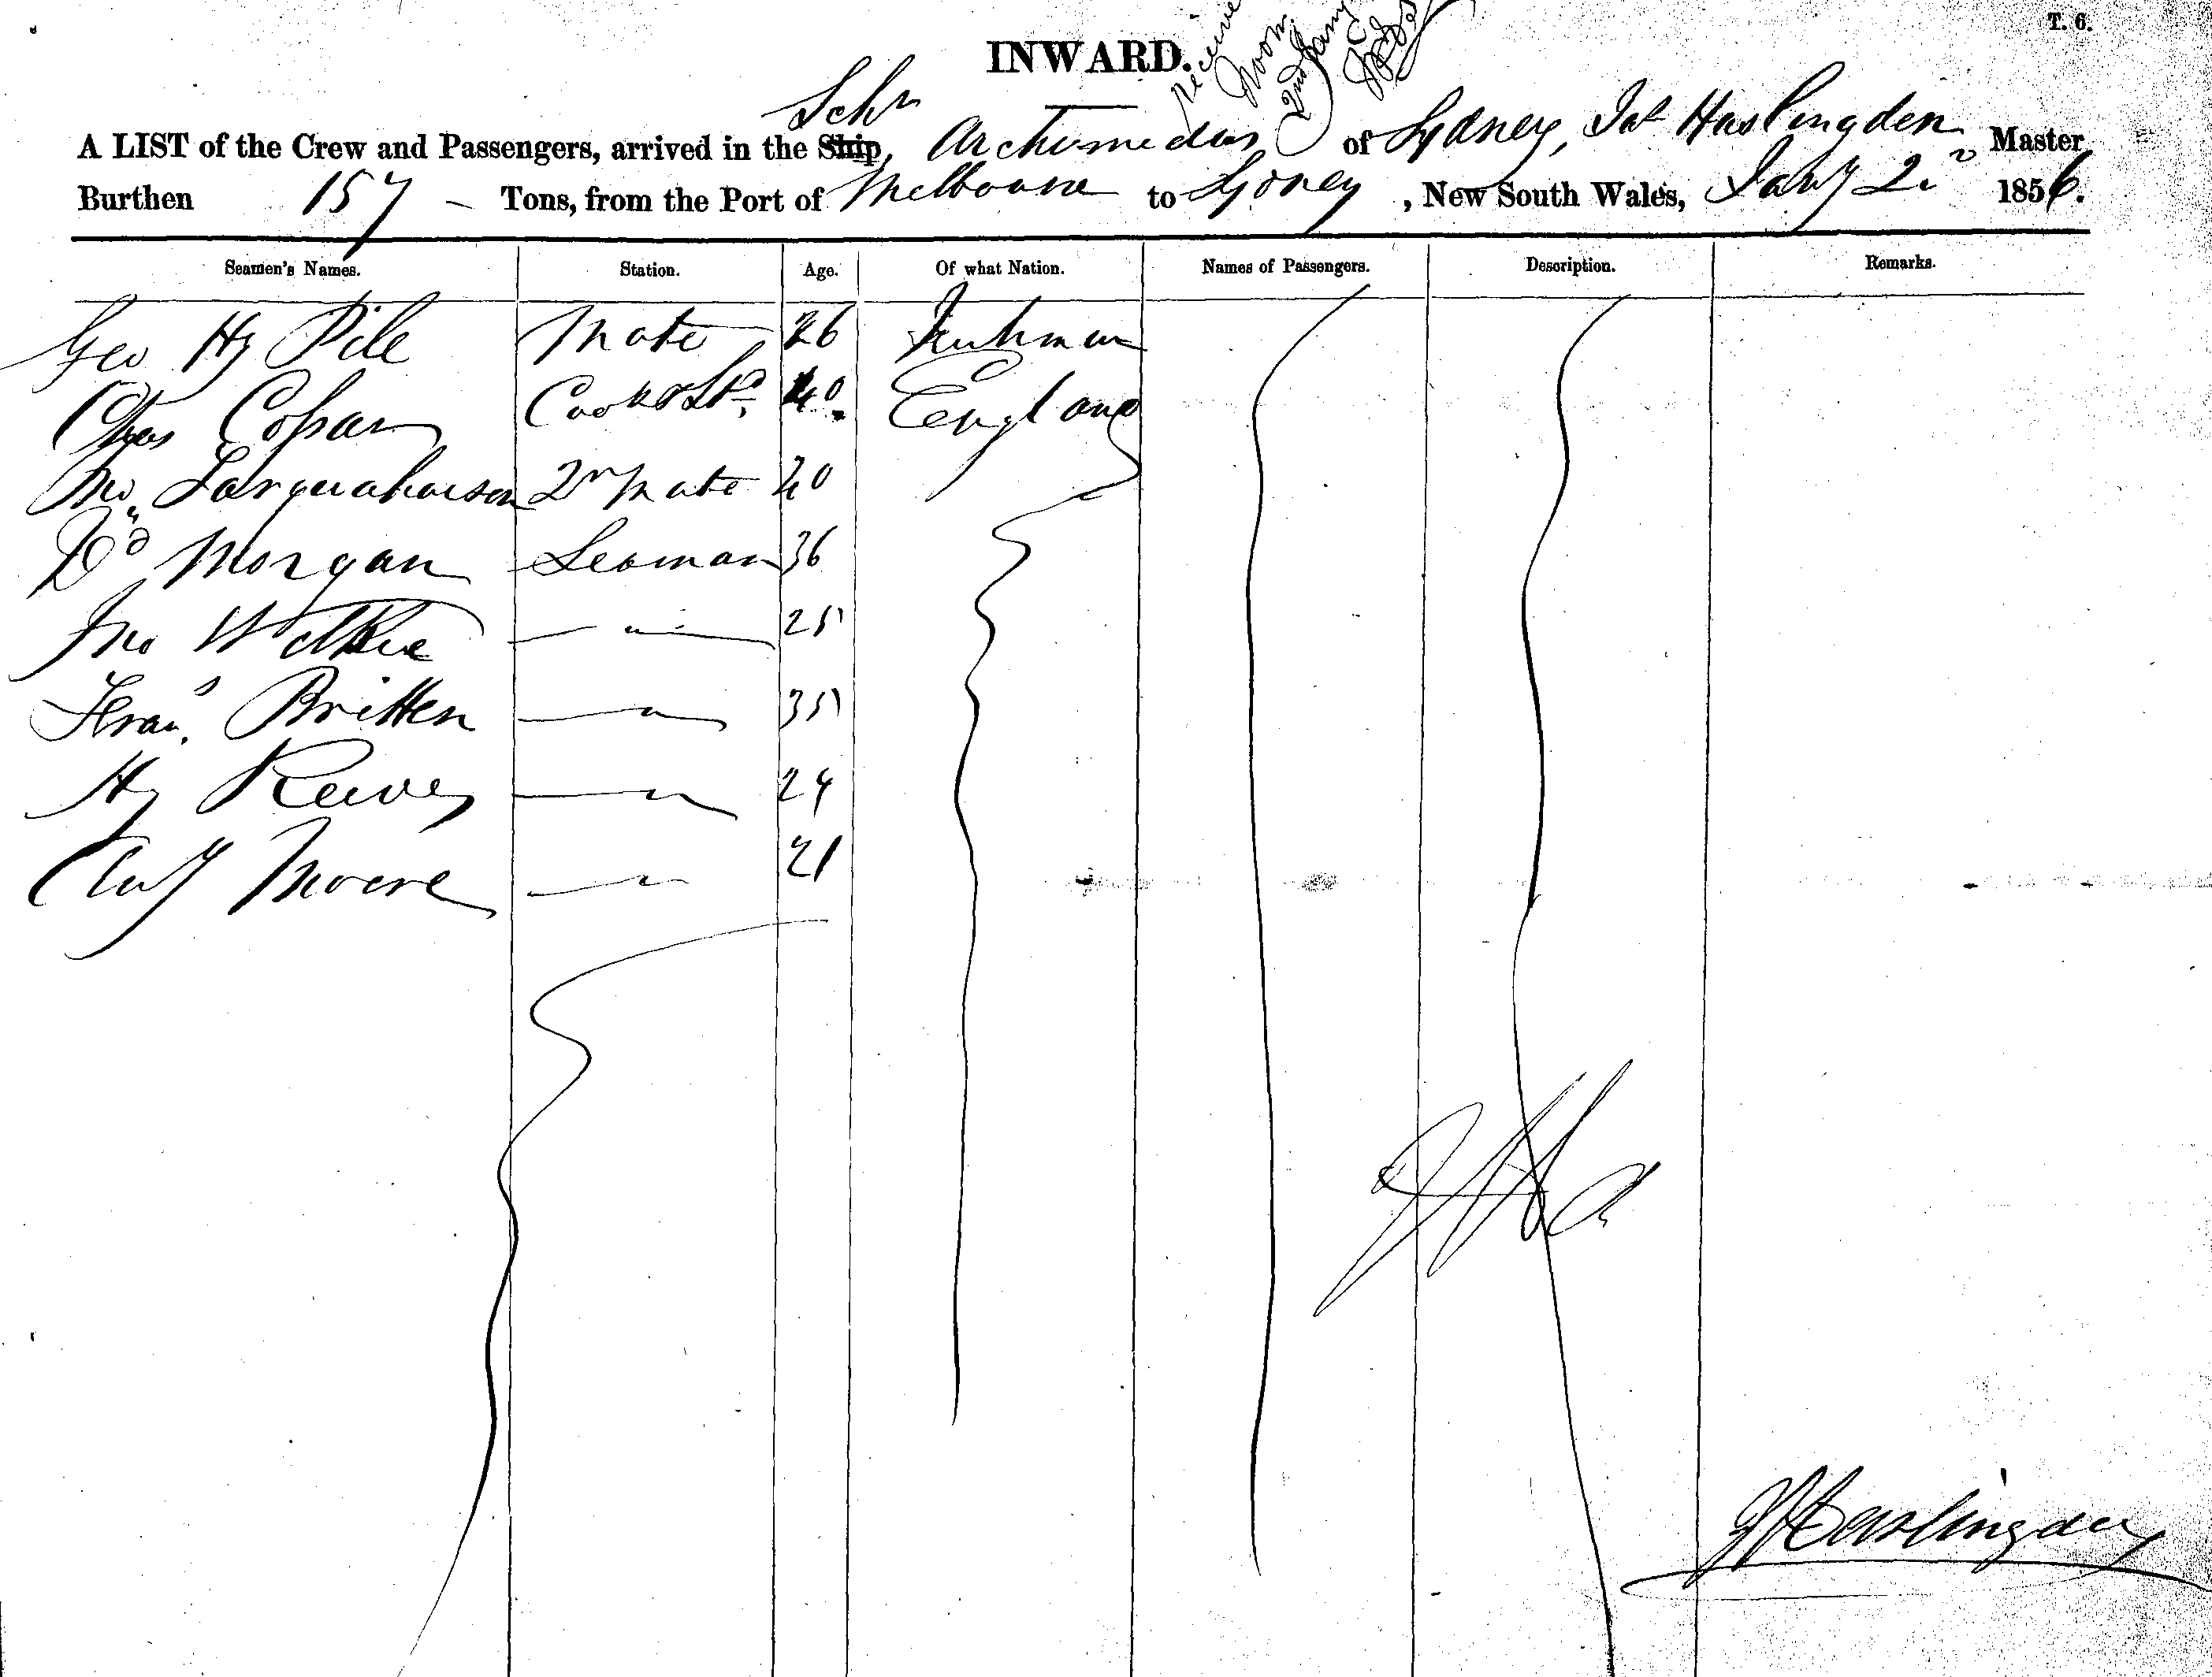 T. 6.
INWARD.
Noon
2nd Jany
Schr
A LIST of the Crew and Passengers, arrived in the Ship, Archimedes of Sydney, Jas Haslingden Master,
Burthen 157 - Tons, from the Port of Melbourne to Sydney, New South Wales, Jany 2d 1856.
Seamen's Names. Station. Age. Of what Nation. Names of Passengers. Description. Remarks.
Geo Hy Pile Mate 26 Irishman
Chas Cohan Cook & Std 40 England
Jno Farquaharson 2nd Mate 20
Do Morgan Seaman 36
Jno Wilkie — " — 25
Frans Britten — " — 35
Hy Reeves — " — 24
Moore — " — 21
J Haslingden